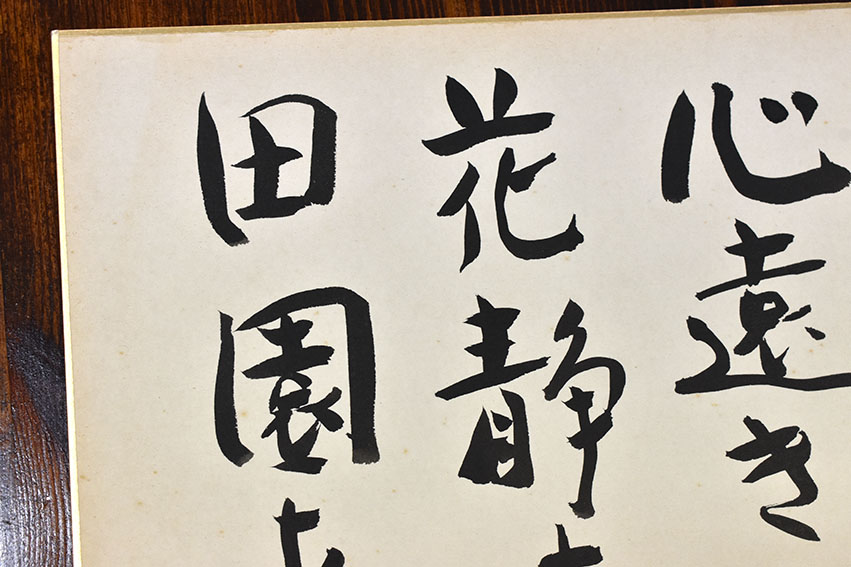 心遠き
花静
田園